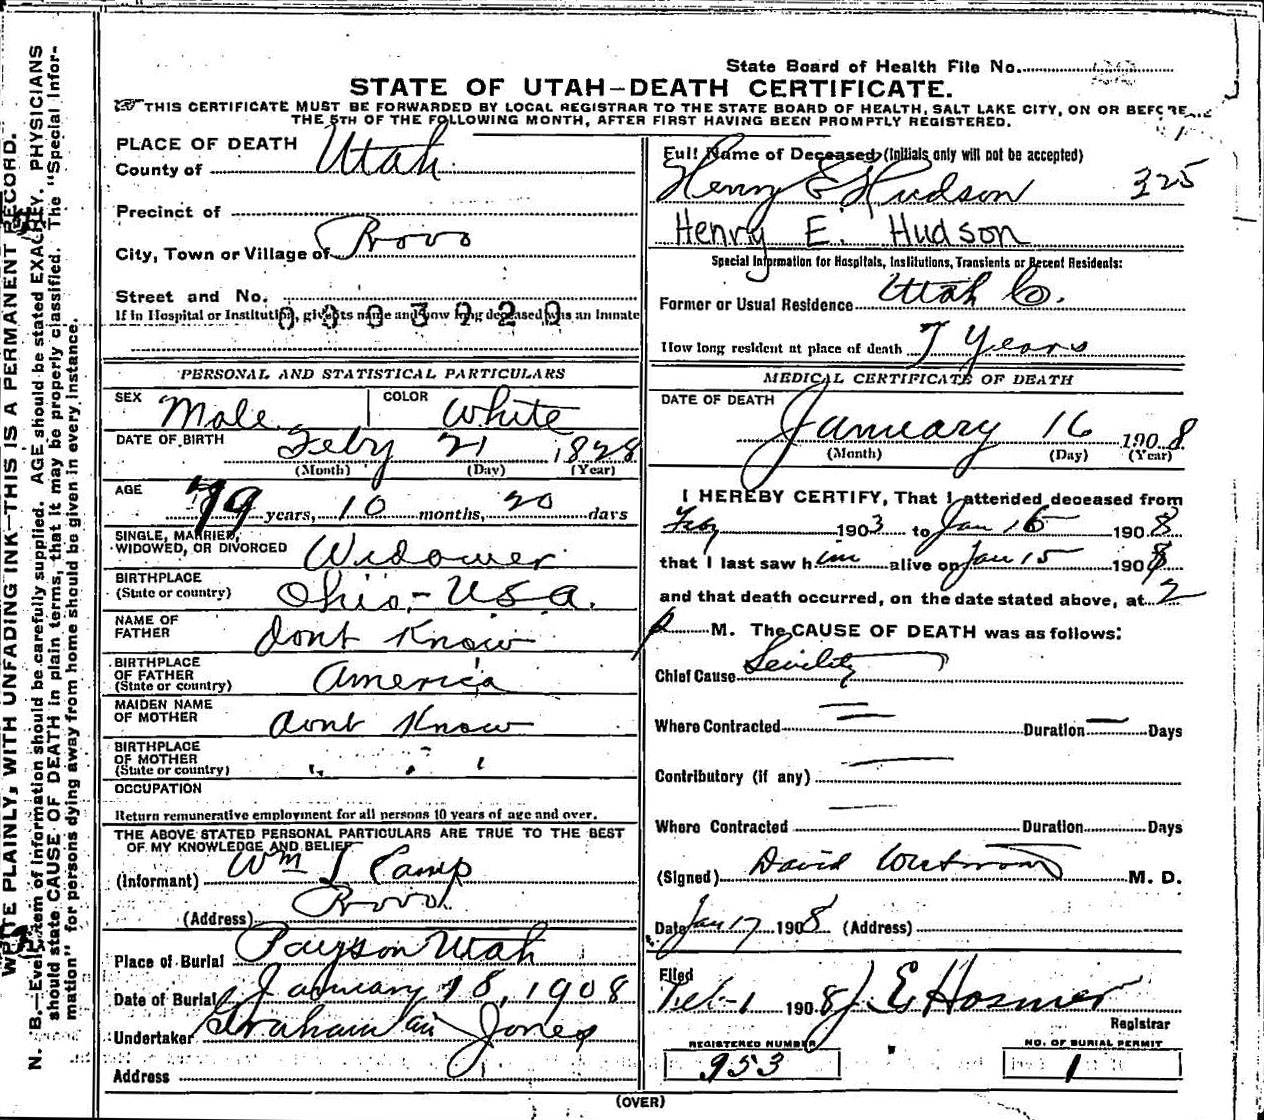 State Board of Health File No.
STATE OF UTAH—DEATH CERTIFICATE.
THIS CERTIFICATE MUST BE FORWARDED BY LOCAL REGISTRAR TO THE STATE BOARD OF HEALTH, SALT LAKE CITY, ON OR BEFORE
THE 5TH OF THE FOLLOWING MONTH, AFTER FIRST HAVING BEEN PROMPTLY REGISTERED.
WRITE PLAINLY, WITH UNFADING INK—THIS IS A PERMANENT RECORD.
N. B.—Every item of information should be carefully supplied. AGE should be stated EXACTLY. PHYSICIANS
should state CAUSE OF DEATH in plain terms, that it may be properly classified. The "Special Infor-
mation" for persons dying away from home should be given in every instance.
PLACE OF DEATH
County of Utah
Precinct of
City, Town or Village of Provo
Street and No.
If in Hospital or Institution, give its name and how long deceased was an inmate
PERSONAL AND STATISTICAL PARTICULARS
SEX Male COLOR White
DATE OF BIRTH Feby 21 1828
(Month) (Day) (Year)
AGE 79 years, 10 months, 20 days
SINGLE, MARRIED,
WIDOWED, OR DIVORCED Widower
BIRTHPLACE
(State or country) Ohio,- U S a.
NAME OF
FATHER dont Know
BIRTHPLACE
OF FATHER
(State or country) America
MAIDEN NAME
OF MOTHER dont Know
BIRTHPLACE
OF MOTHER
(State or country) " " "
OCCUPATION
Return remunerative employment for all persons 10 years of age and over.
THE ABOVE STATED PERSONAL PARTICULARS ARE TRUE TO THE BEST
OF MY KNOWLEDGE AND BELIEF
(Informant) Wm L Camp
(Address) Provo.
Place of Burial Payson Utah
Date of Burial January 18, 1908
Undertaker Graham Jones
Address
Full Name of Deceased (Initials only will not be accepted)
Henry E Hudson 325
Henry E. Hudson
Special Information for Hospitals, Institutions, Transients or Recent Residents:
Former or Usual Residence Utah Co.
How long resident at place of death 7 Years
MEDICAL CERTIFICATE OF DEATH
DATE OF DEATH
January 16 1908
(Month) (Day) (Year)
I HEREBY CERTIFY, That I attended deceased from
Feby 1903 to Jan 15 1908
that I last saw him alive on Jan 15 1908
and that death occurred, on the date stated above, at 2
p M. The CAUSE OF DEATH was as follows:
Chief Cause Senility
Where Contracted — Duration — Days
Contributory (if any) —
Where Contracted Duration Days
(Signed) David Westwood M. D.
Date Jan 17 1908 (Address)
Filed
Feb-1 1908 J E Hosmer
Registrar
REGISTERED NUMBER
953
NO. OF BURIAL PERMIT
1
(OVER)